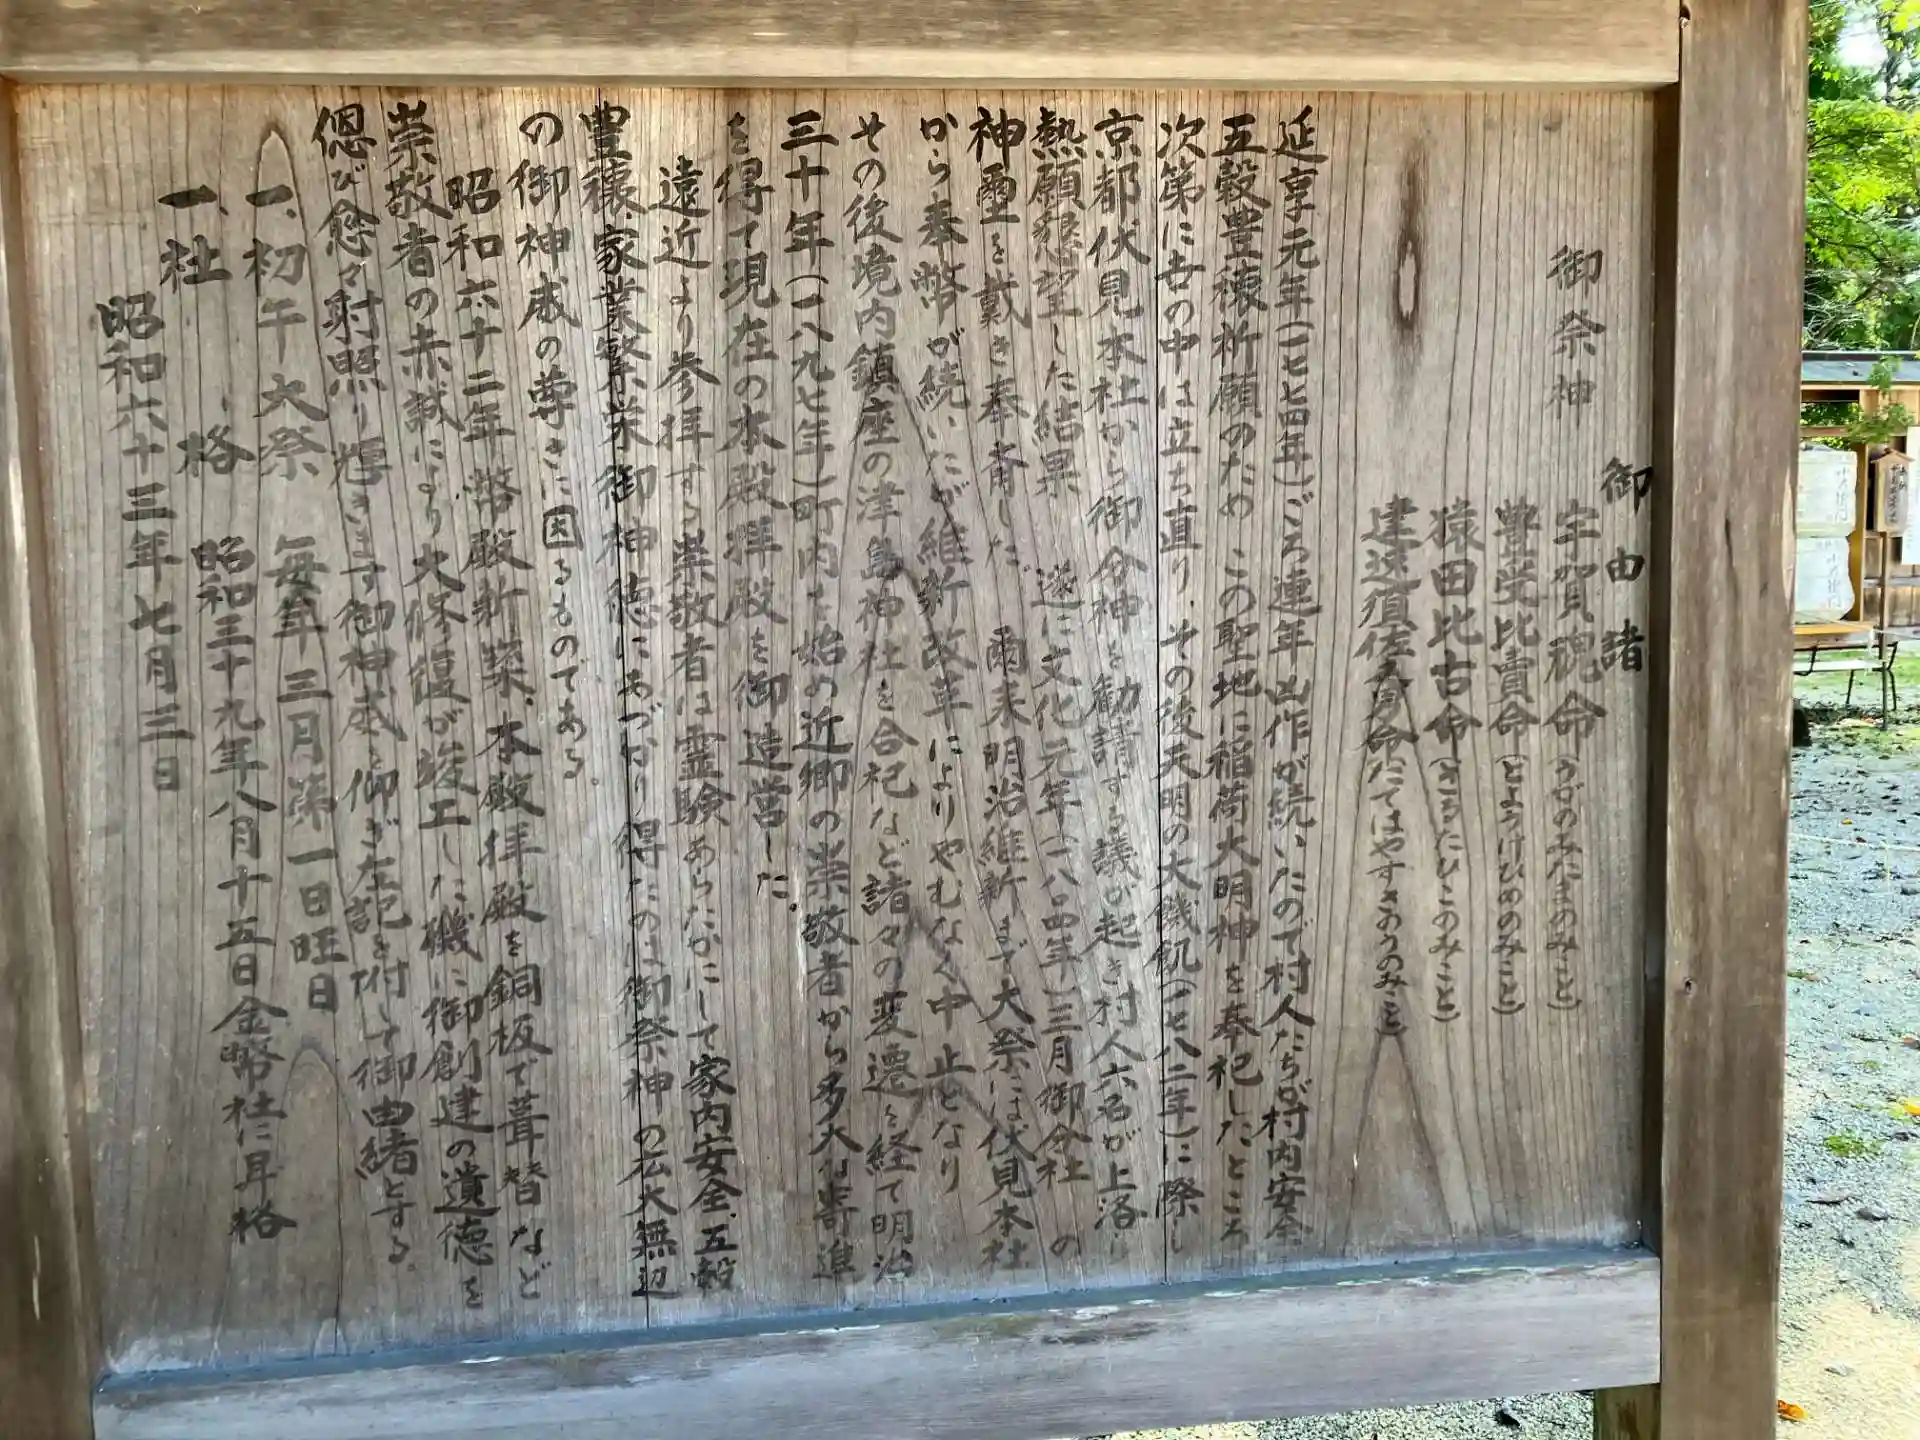 御由諸
御祭神
宇賀魂命(うがのみたまのみこと)
豊受比賣命(とようけひめのみこと)
猿田比古命(さるたひこのみこと)
建速須佐男命(たてはやすさおうのみこと)
延享元年(一七七四年)ごろ連年凶作が続いたので村人たちが村内安全
五穀豊穣祈願のためこの聖地に稲荷大明神を奉祀したところ
次第に古の中は立ち直り、その後天明の大饑飢(一七八二年)に際し
京都伏見本社から御分神を勧請する議が起き村人六名が上洛し
熱願懇望した結果、遂に文化元年(一八〇四年)三月御分社の
神璽を戴き奉斎した。爾来明治維新まで大祭には伏見本社
から奉幣が続いたが維新改革によりやむなく中止となり
その後境内鎮座の津島神社を合祀など諸々の変遷を経て明治
三十年(一八九七年)町内を始め近郷の崇敬者から多大な寄進
を得て現在の本殿拝殿を御造営した。
遠近より参拝する崇敬者は霊験あらたかにして家内安全、五穀
豊穣、家業繁栄御神徳にあづかり得たのは御祭神の広大無辺
の御神威の尊さに因るものである。
昭和六十二年幣殿新築、本殿拝殿を銅板で葺替など
崇敬者の赤誠により大修復が竣工した機に御創建の遺徳を
偲び愈々射照り輝きます御神威を仰ぎ左記を附して御由緒とする。
一、初午大祭 毎年三月第一日旺日
一、社 格 昭和三十九年八月十五日金幣社に昇格
昭和六十三年七月三日